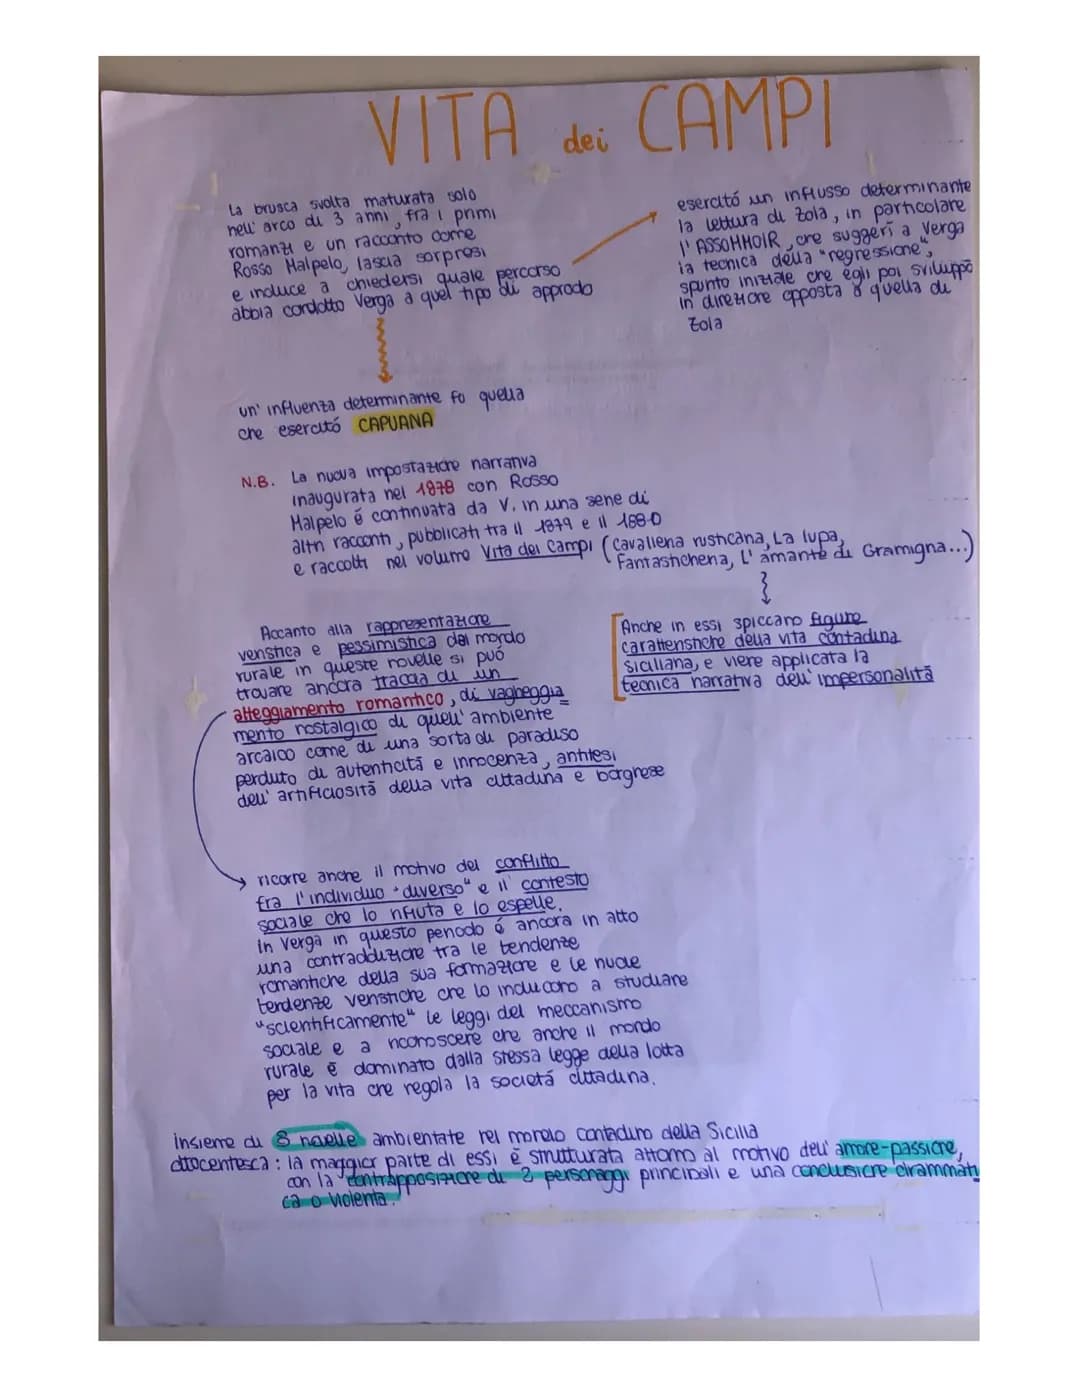 VITA dei CAMPI
La brusca svolta maturata solo
nell'arco di 3 anni, fra i primi
romanzi e un racconto come
Rosso Malpelo, lascia sorpresi
e induce a chiedersi quale percorso
abbia condotto Verga a quel tipo di approdo
esercitó un influsso determinante
la lettura di Zola, in particolare
l'ASSOMMOIR, che suggerí a Verga
la tecnica della "regressione",
spunto iniziale che egli poi sviluppó
in direzione opposta a quella di
Zola
un'influenza determinante fo quella
che esercitó CAPUANA
N.B. La nuova impostazione narrativa
inaugurata nel 1878 con Rosso
Malpelo é continuata da V. in una serie di
altri racconti, pubblicati tra il 1879 e il 1880
e raccolti nel volume Vita dei Campi (Cavalleria rusticana, La lupa,
Fantasticheria, L'amante di Gramigna...)
Anche in essi spiccano figure
caratteristiche della vita contadina
siciliana, e viene applicata la
tecnica narrativa dell'impersonalitá
Accanto alla rappresentazione
veristica e pessimistica del mondo
rurale in queste novelle si puó
trovare ancora traccia di un
atteggiamento romantico, di vagheggia=
mento nostalgico di quell'ambiente
arcaico come di una sorta di paradiso
perduto di autenticitá e innocenza, antitesi
dell'artificiositá della vita cittadina e borghese
ricorre anche il motivo del conflitto
fra l'individuo "diverso" e il contesto
sociale che lo rifiuta e lo espelle.
in Verga in questo periodo é ancora in atto
una contraddizione tra le tendenze
romantiche della sua formazione e le nuove
tendenze veristiche che lo inducono a studiare
"scientificamente" le leggi del meccanismo
sociale e a riconoscere che anche il mondo
rurale é dominato dalla stessa legge della lotta
per la vita che regola la societá cittadina.
insieme di 8 novelle ambientate nel mondo contadino della Sicilia
ottocentesca: la maggior parte di essi é strutturata attorno al motivo dell'amore-passione,
con la contrapposizione di 2 personaggi principali e una conclusione drammati
ca o violenta.